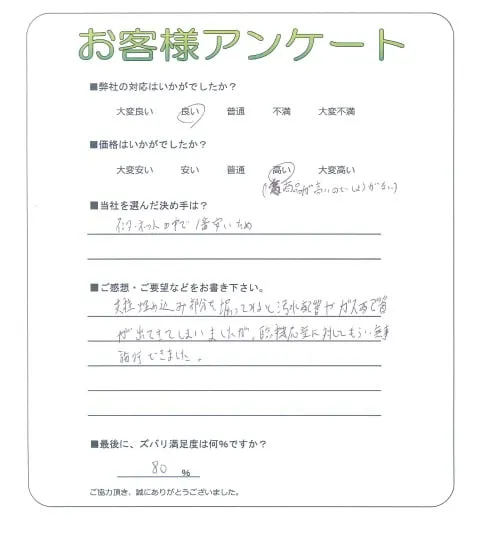 お客様アンケート
■弊社の対応はいかがでしたか?
大変良い 良い 普通 不満 大変不満
■価格はいかがでしたか?
大変安い 安い 普通 高い 大変高い
(商品が高いのでしょうがない)
■当社を選んだ決め手は?
インターネットの中で1番安いため
■ご感想・ご要望などをお書き下さい。
支柱埋め込み部分を掘ってみると汚水配管やガス配管
が出てきてしまいましたが、臨機応変に対してもらい無事
設付できました。
■最後に、ズバリ満足度は何%ですか?
80 %
ご協力頂き、誠にありがとうございました。